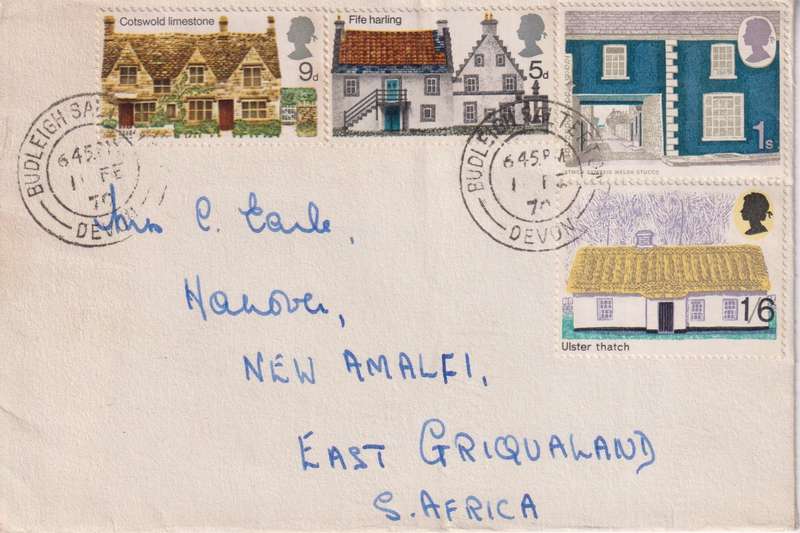 Cotswold limestone
9d
Fife harling
5d
1s
WELSH STUCCO
1/6
Ulster thatch
BUDLEIGH
6 45 PM
FE
70
DEVON
BUDLEIGH SALTERTON
6 45 PM
70
DEVON
Mrs C. Earle,
Hanover,
NEW AMALFI,
EAST GRIQUALAND
S. AFRICA